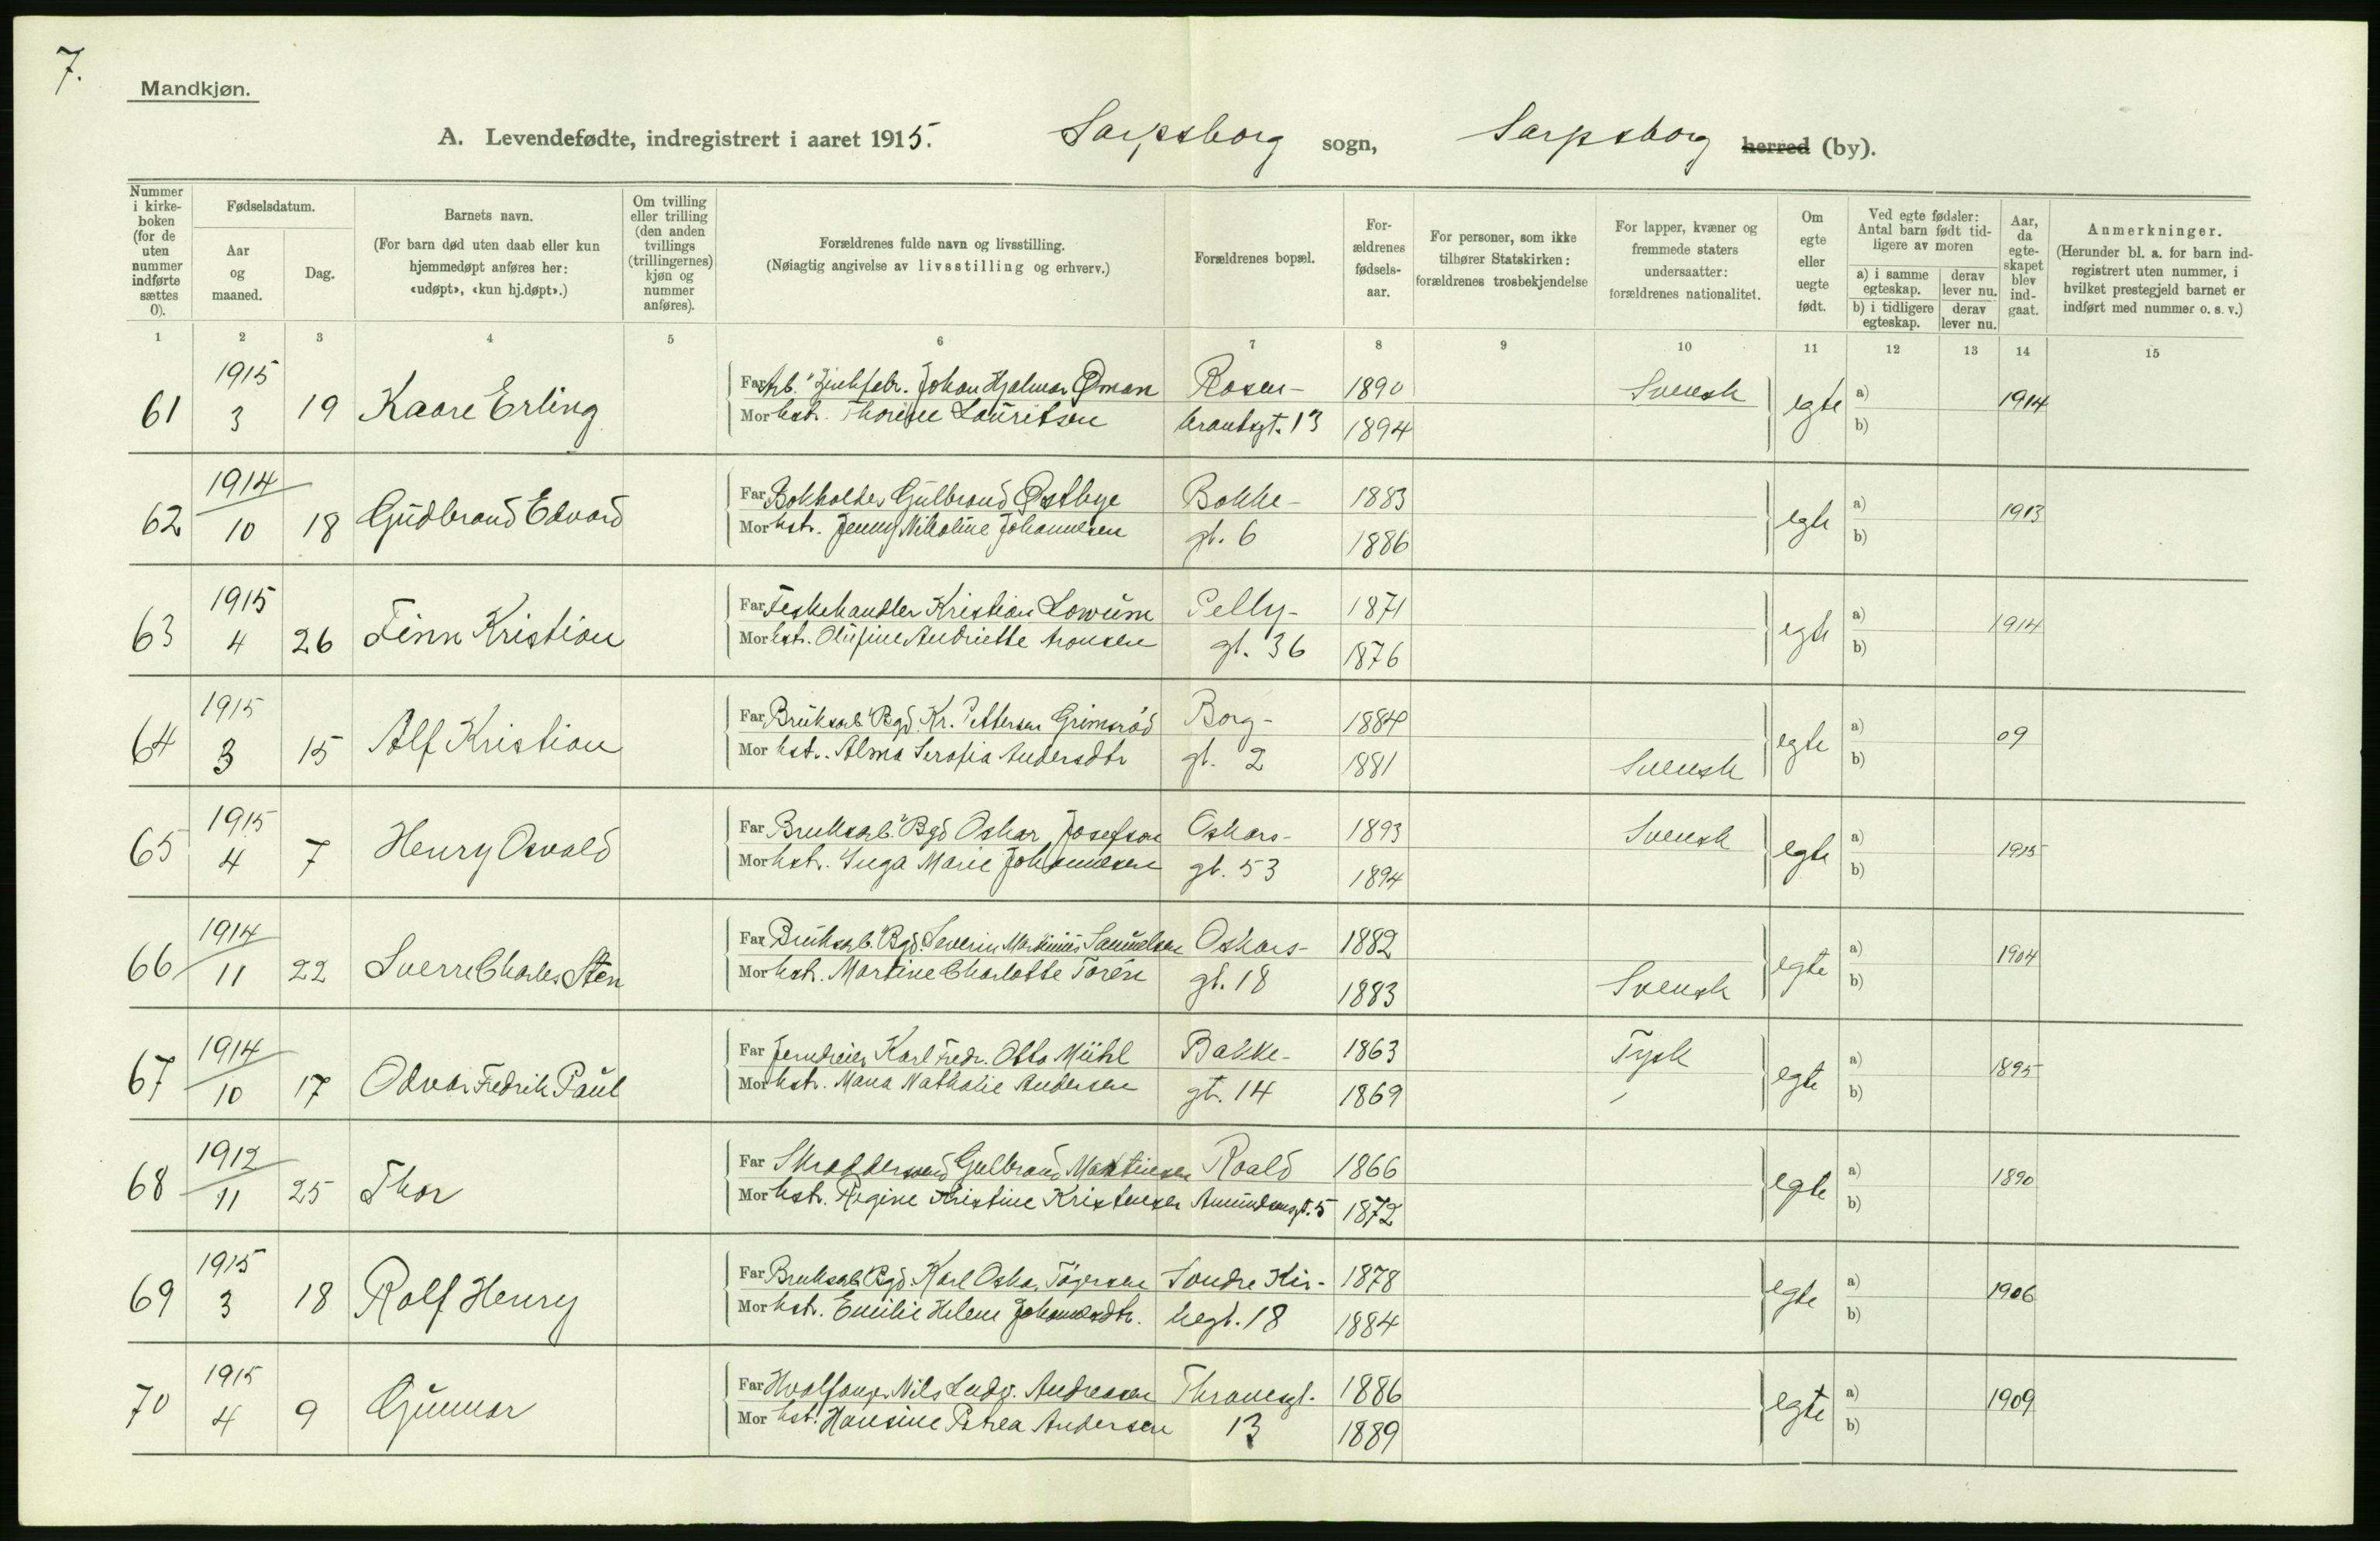 7.
Mandkjøn.
A. Levendefødte, indregistrert i aaret 1915. Sarpsborg sogn, Sarpsborg herred (by).
Nummer i kirkeboken (for de uten nummer indførte sættes 0).
Fødselsdatum.
Aar og maaned.
Dag.
Barnets navn.
(For barn død uten daab eller kun hjemmedøpt anføres her: «udøpt», «kun hj.døpt».)
Om tvilling eller trilling (den anden tvillings (trillingernes) kjøn og nummer anføres).
Forældrenes fulde navn og livsstilling.
(Nøiagtig angivelse av livsstilling og erhverv.)
Forældrenes bopæl.
Forældrenes fødselsaar.
For personer, som ikke tilhører Statskirken: forældrenes trosbekjendelse
For lapper, kvæner og fremmede staters undersaatter: forældrenes nationalitet.
Om egte eller uegte født.
Ved egte fødsler: Antal barn født tidligere av moren
a) i samme egteskap. derav lever nu.
b) i tidligere egteskap. derav lever nu.
Aar, da egteskapet blev indgaat.
Anmerkninger.
(Herunder bl. a. for barn indregistrert uten nummer, i hvilket prestegjeld barnet er indført med nummer o. s. v.)
1 2 3 4 5 6 7 8 9 10 11 12 13 14 15
1915 Far Arb. Zinkfabr. Johan Hjalmar Øman Rosen- 1890 Svensk a)
61 3 19 Kaare Erling Mor hstr. Lauritsen krantzgt. 13 1894 egte b) 1914
1914 Far Bokholder Gulbrand Østbye Bakke- 1883 a)
62 10 18 Gudbrand Edvard Mor hstr. Jenny Nikoline Johannesen gt. 6 1886 egte b) 1913
1915 Far Feskehandler Kristian Lowum Pelly- 1871 a)
63 4 26 Finn Kristian Mor hstr. Olufine Andriette Aronsen gt. 36 1876 egte b) 1914
1915 Far Bruksarb. Bgd. Kr. Pettersen Grimsrød Borg- 1884 a)
64 3 15 Alf Kristian Mor hstr. Alma Serafia Andersdtr gt. 2 1881 Svensk egte b) 09
1915 Far Bruksarb. Bgd Oskar Josefson Oskars- 1893 Svensk a)
65 4 7 Henry Osvald Mor hstr. Inga Marie Johannesen gt. 53 1894 egte b) 1915
1914 Far Bruksarb. Bgd. Severin Martinius Samuelsen Oskars- 1882 a)
66 11 22 Sverre Charles Sten Mor hstr. Martine Charlotte Torén gt. 18 1883 Svensk egte b) 1904
1914 Far Jerndreier Karl Fredr. Otto Mühl Bakke- 1863 Tysk a)
67 10 17 Odvar Fredrik Paul Mor hstr. Maria Nathalie Andersen gt. 14 1869 egte b) 1895
1912 Far Skræddersvend Gulbrand Martinsen Roald 1866 a)
68 11 25 Thor Mor hstr. Regine Kristine Kristensen Amundsensgt. 5 1872 egte b) 1890
1915 Far Bruksarb. Bgd. Karl Oskar Søndre Kir- 1878 a)
69 3 18 Rolf Henry Mor hstr. Emilie Helene Johannesdtr. kegt. 18 1884 egte b) 1906
1915 Far Hvalfanger Nils Ludv. Andreasen Thranesgt. 1886 a)
70 4 9 Gunnar Mor hst. Hansine Petrea Andersen 13 1889 egte b) 1909